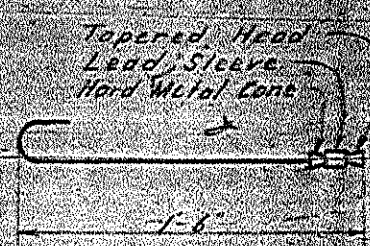 Tapered Head
Lead Sleeve
Hard Metal Cone
1'-6"